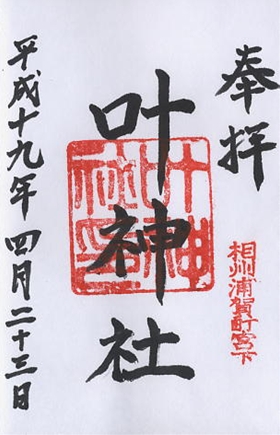 奉拝
相州浦賀町宮下
叶神社
平成十九年四月二十三日